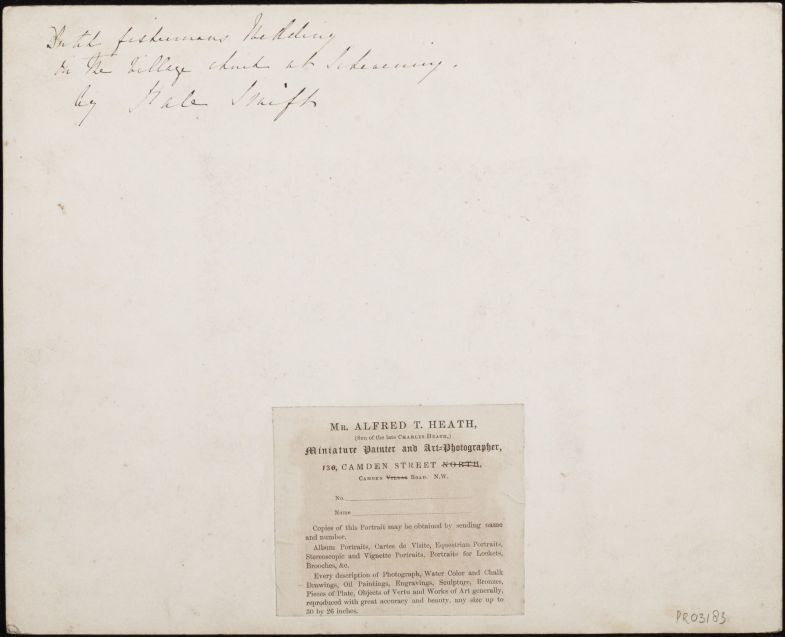 Dutch fishermans Wedding
in the Village church at Schevening.
by Kate Swift
MR. ALFRED T. HEATH,
(Son of the late CHARLES HEATH,)
Miniature Painter and Art-Photographer,
130, CAMDEN STREET NORTH,
CAMDEN VILLAS ROAD. N.W.
No.
Name
Copies of this Portrait may be obtained by sending name
and number.
Album Portraits, Cartes de Visite, Equestrian Portraits,
Stereoscopic and Vignette Portraits, Portraits for Lockets,
Brooches, &c.
Every description of Photograph, Water Color and Chalk
Drawings, Oil Paintings, Engravings, Sculpture, Bronzes,
Pieces of Plate, Objects of Vertu and Works of Art generally,
reproduced with great accuracy and beauty, any size up to
30 by 26 inches.
PR03183